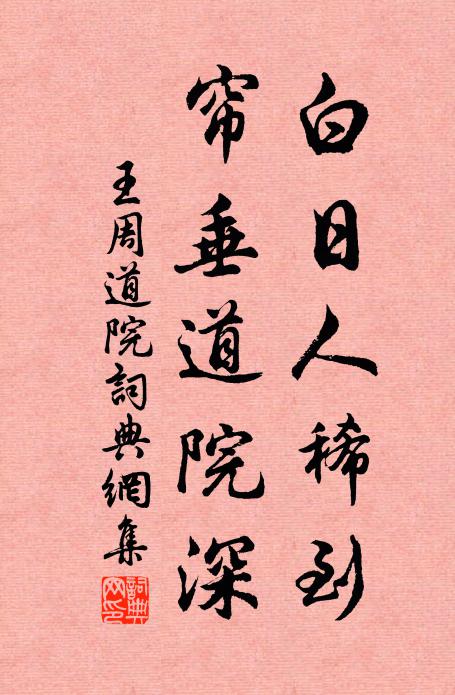 白日人稀到
帘垂道院深
王周道院詞典網集
詞典网印